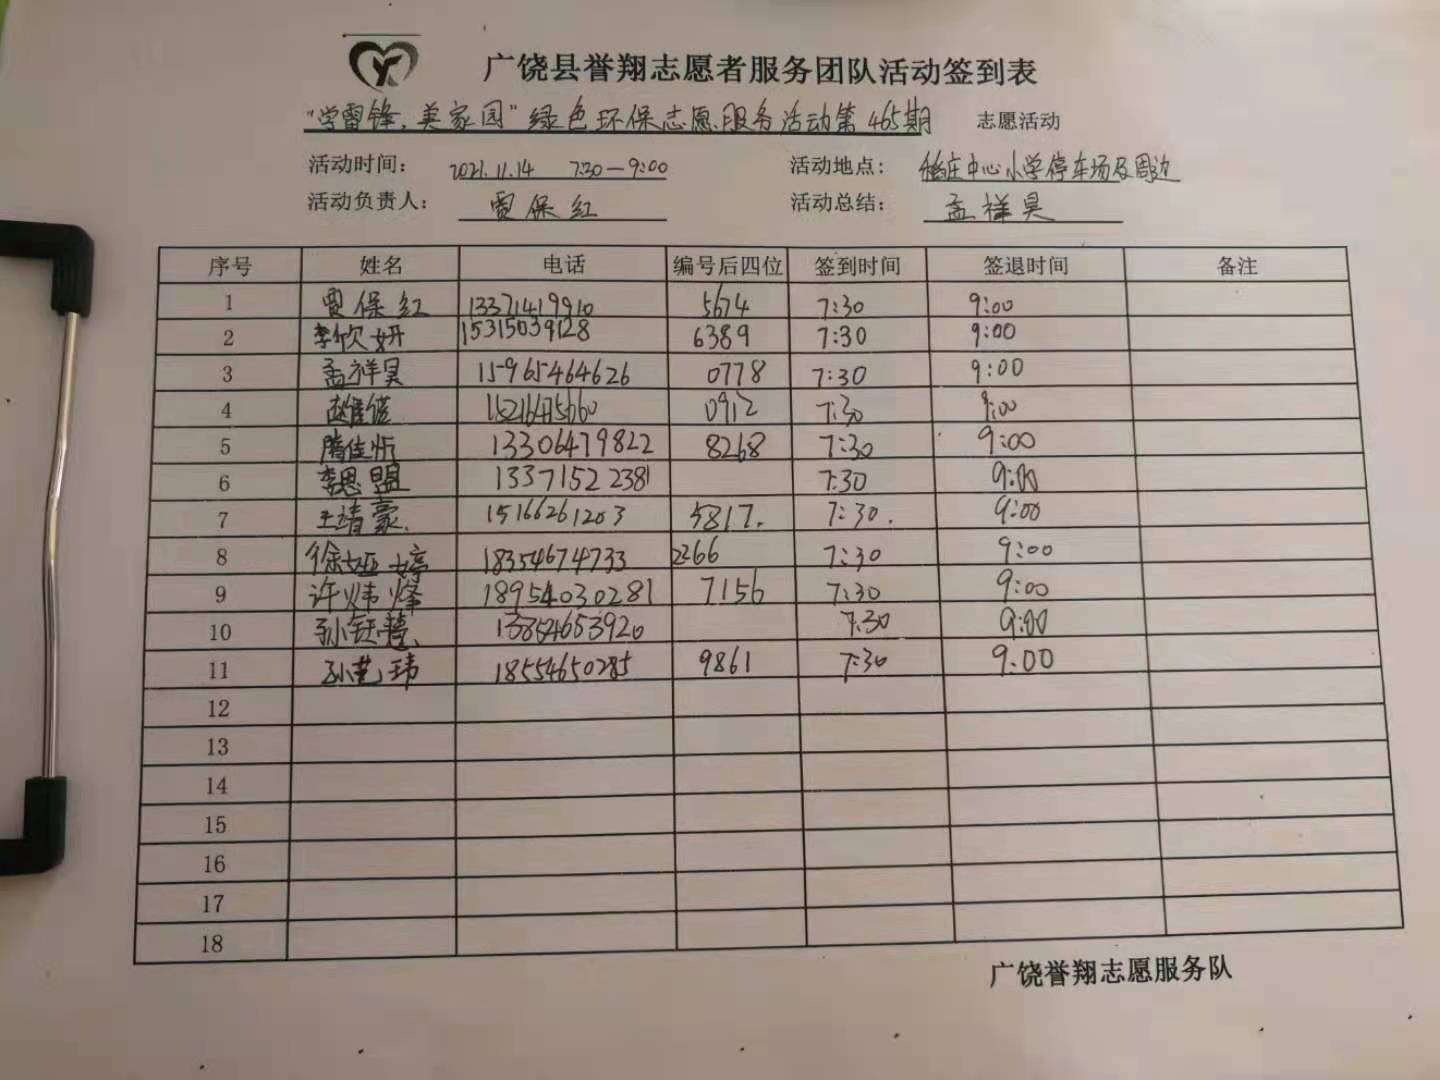 广饶县誉翔志愿者服务团队活动签到表
"学雷锋，美家园"绿色环保志愿服务活动第465期 志愿活动
活动时间： 2021.11.14 7:30—9:00 活动地点： 稻庄中心小学停车场及周边
活动负责人： 贾保红 活动总结： 孟祥昊
序号 姓名 电话 编号后四位 签到时间 签退时间 备注
1 贾保红 13371419910 5674 7:30 9:00
2 李欣妍 15315039128 6389 7:30 9:00
3 孟祥昊 15965464626 0778 7:30 9:00
4 0912 7:30 9:00
5 腾佳忻 13306479822 8268 7:30 9:00
6 李思盟 13371522381 7:30 9:00
7 王靖豪. 15166261203 5817. 7:30. 9:00
8 徐娅婷 18354674733 2266 7:30 9:00
9 许炜烽 18954030281 7156 7:30 9:00
10 孙钰慧 13854653920 7:30 9:00
11 孙艺玮 18554650285 9861 7:30 9:00
12
13
14
15
16
17
18
广饶誉翔志愿服务队